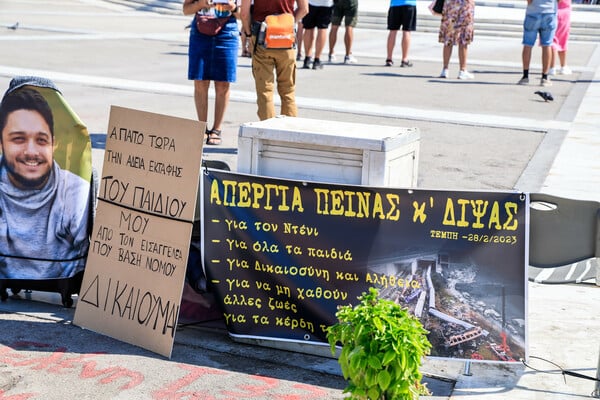 ΑΠΑΙΤΩ ΤΩΡΑ
ΤΗΝ ΑΔΕΙΑ ΕΚΤΑΦΗΣ
ΤΟΥ ΠΑΙΔΙΟΥ
ΜΟΥ
ΑΠΟ ΤΟΝ ΕΙΣΑΓΓΕΛΕΑ
ΠΟΥ ΒΑΣΗ ΝΟΜΟΥ
ΔΙΚΑΙΟΥΜΑΙ
ΑΠΕΡΓΙΑ ΠΕΙΝΑΣ κ' ΔΙΨΑΣ
ΤΕΜΠΗ -28/2/2023
- για τον Ντένι
- για όλα τα παιδιά
- για Δικαιοσύνη και Αλήθεια
- για να μη χαθούν
άλλες ζωές
για τα κέρδη